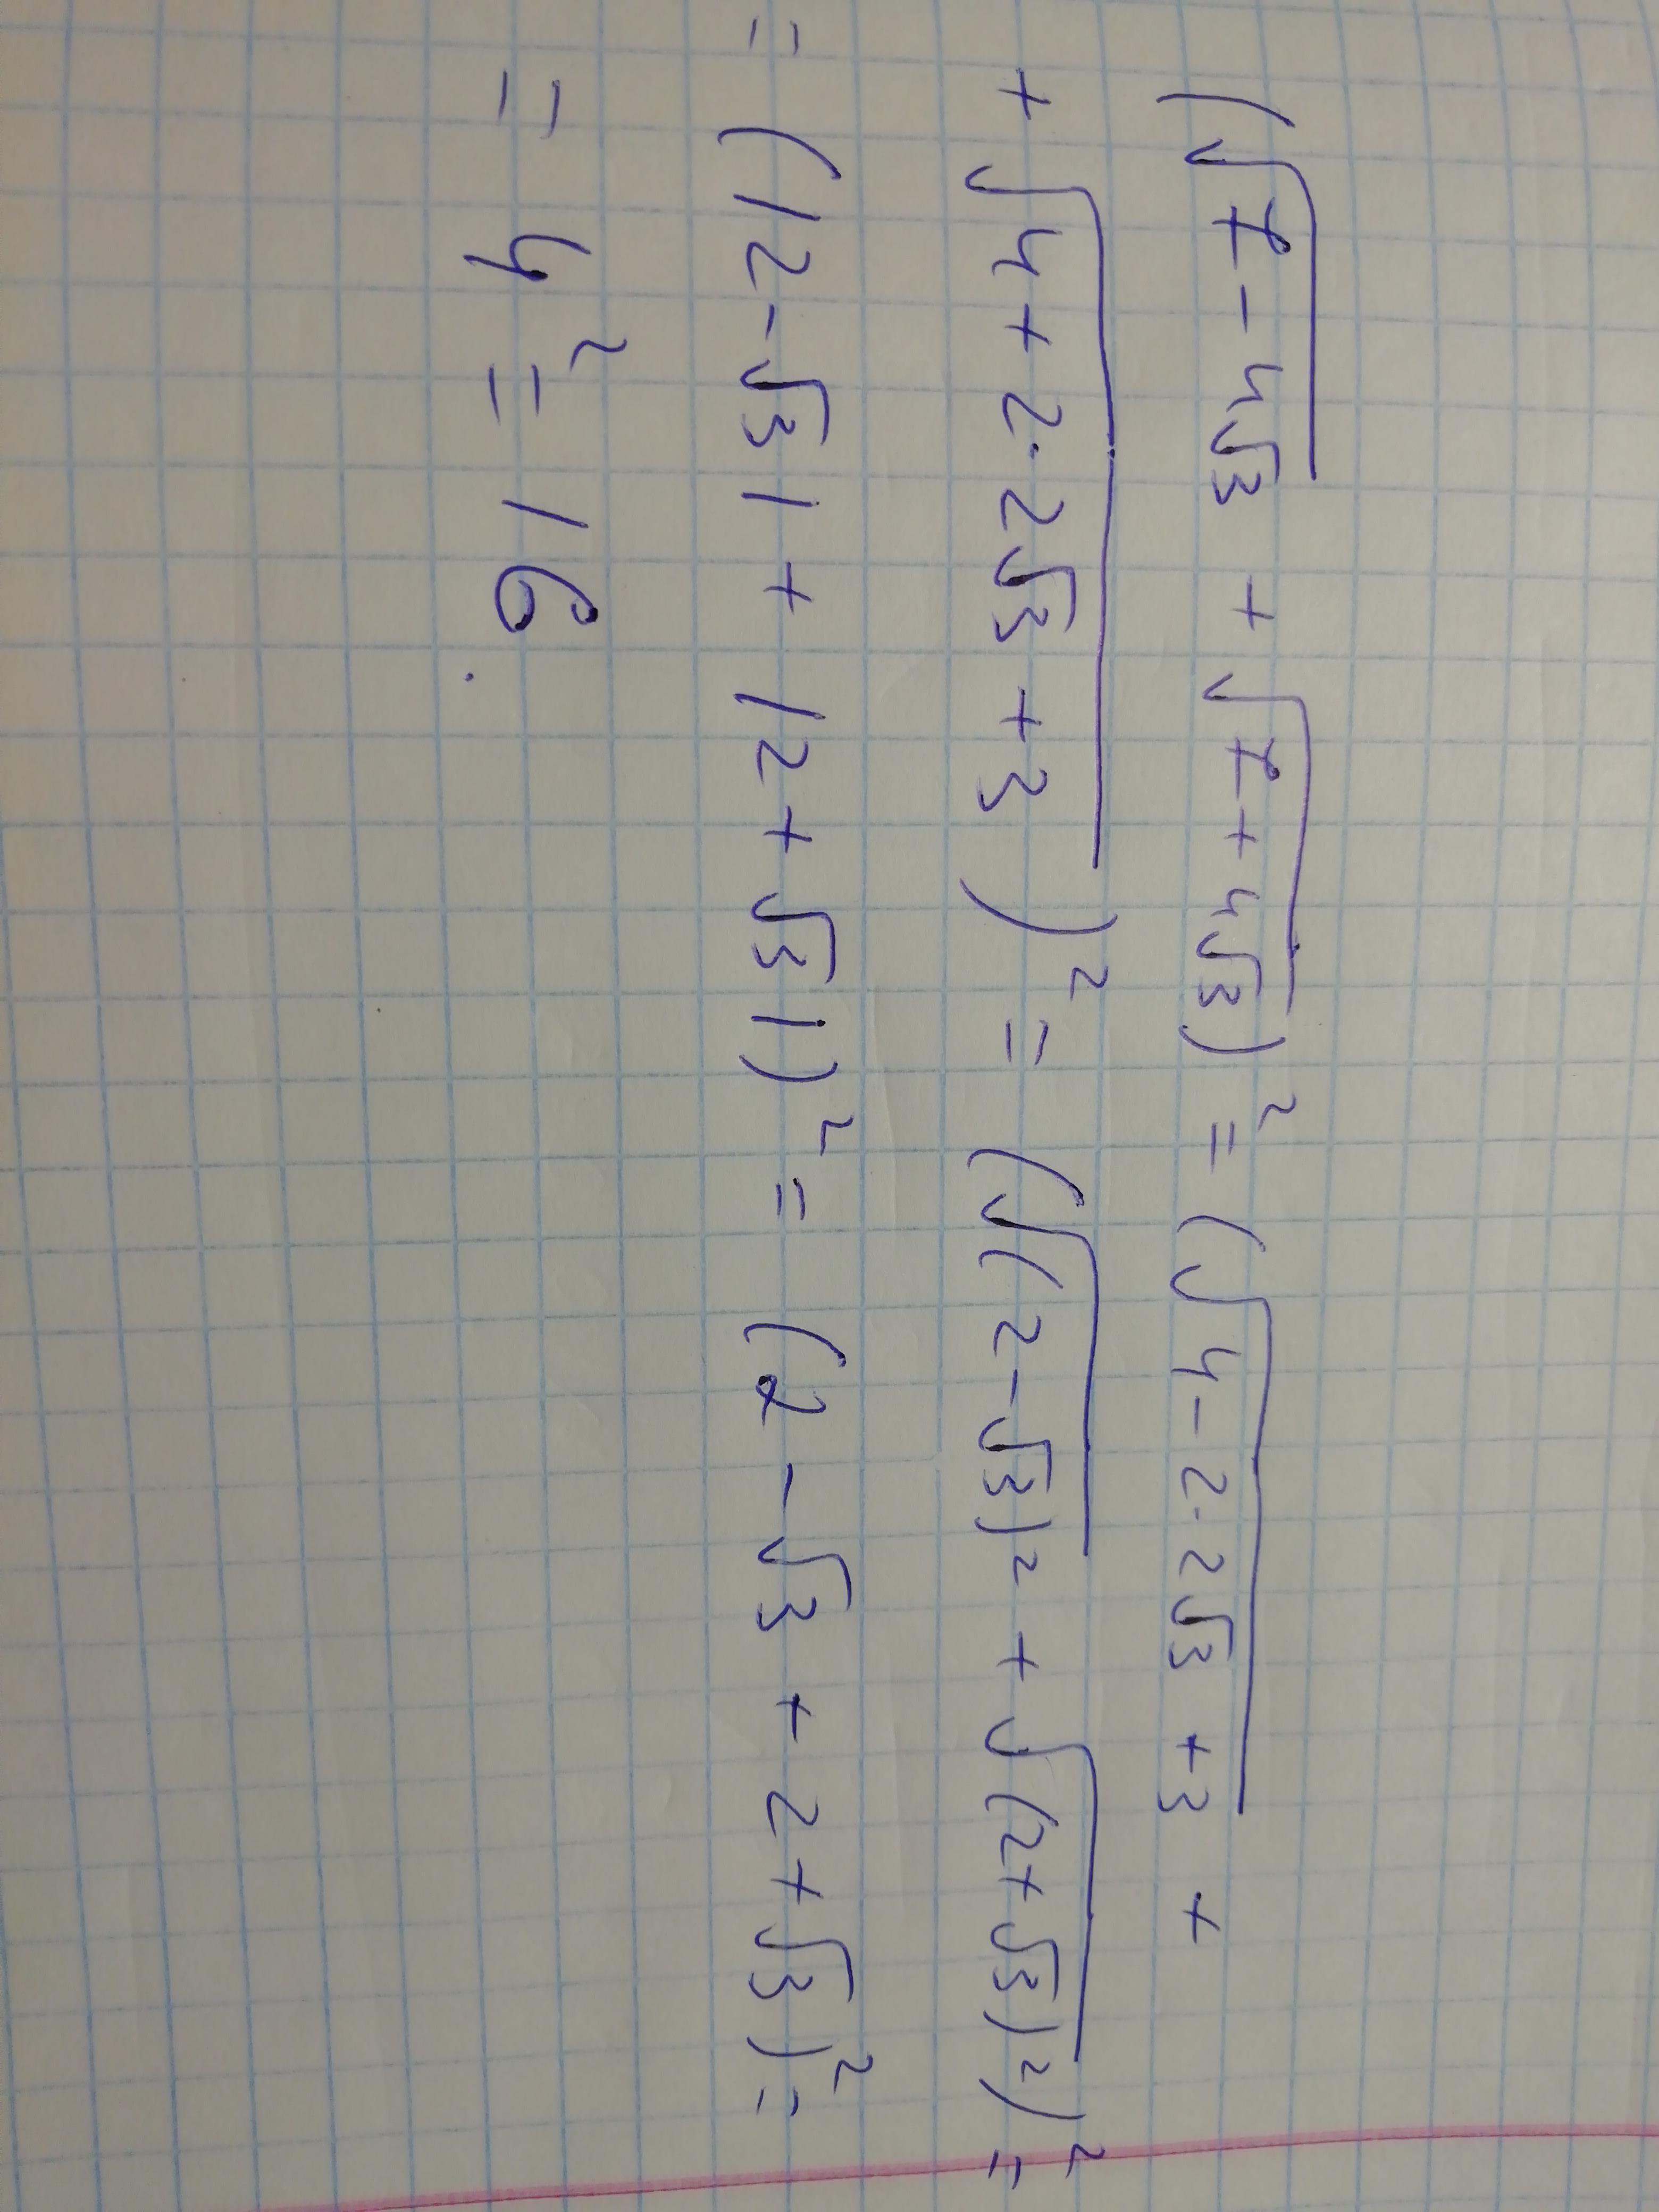 (√(7-4√3) + √(7+4√3))² = (√(4-2·2√3+3) +
+ √(4+2·2√3+3))² = (√((2-√3)²) + √((2+√3)²))² =
= (|2-√3| + |2+√3|)² = (2-√3 + 2+√3)² =
= 4² = 16